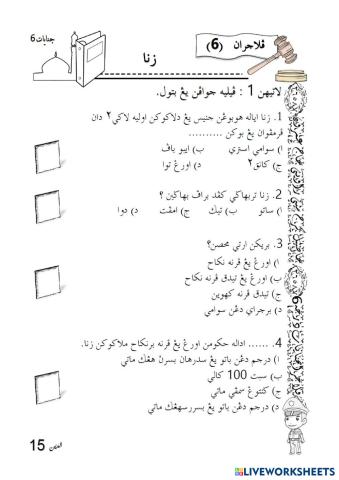 جنايات 6
ڤلاجران (6)
زنا
لاتيهن 1 : ڤيليه جواڤن يڠ بتول.
1. زنا اياله هوبوڠن جنيس يڠ دلاكوكن اوليه لاكي٢ دان
ڤرمڤوان يڠ بوكن ..........
ا) سوامي استري ب) ايبو باڤ
ج) كانق٢ د) اورڠ توا
2. زنا تربهاڬي كڤد براڤ بهاڬين ؟
ا) ساتو ب) تيݢ ج) امڤت د) دوا
3. بريكن ارتي محصن؟
ا) اورڠ يڠ ڤرنه نكاح
ب) اورڠ يڠ تيدق ڤرنه نكاح
ج) تيدق ڤرنه كهوين
د) برجراي دڠن سوامي
4. ...... اداله حكومن اورڠ يڠ ڤرنه برنكاح ملاكوكن زنا.
ا) درجم دڠن باتو يڠ سدرهان بسرڽ هڠݢ ماتي
ب) سبت 100 كالي
ج) ݢنتوڠ سمڤي ماتي
د) درجم دڠن باتو يڠ بسر سهڠݢ ماتي
15
LIVEWORKSHEETS